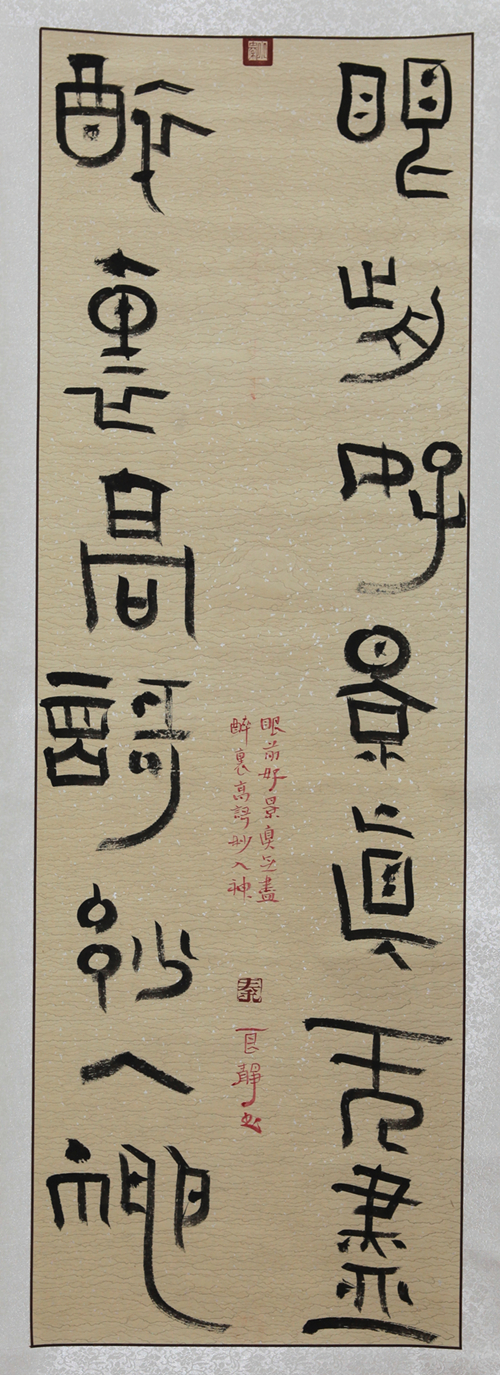 眼前好景真无盡
醉裏高謌妙入神
眼前好景真无盡
醉裏高謌妙入神
靜书